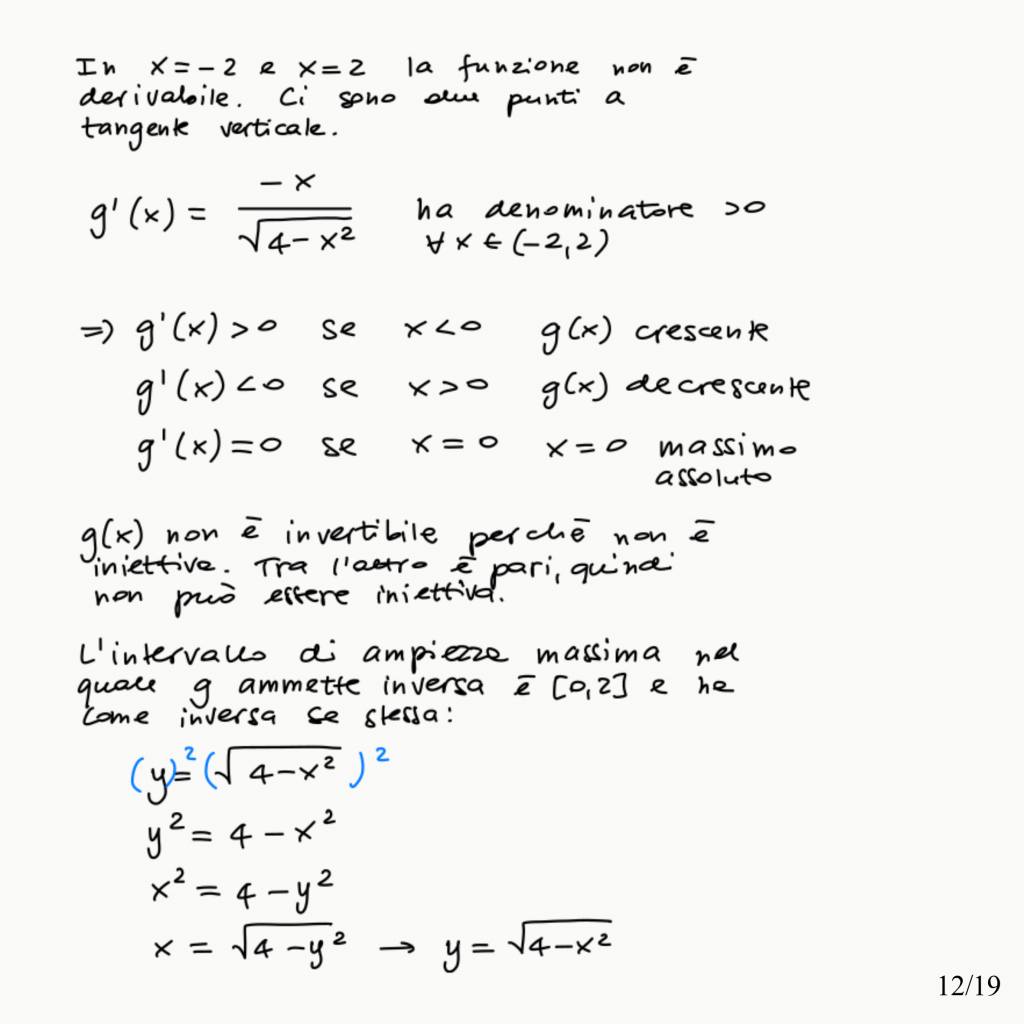 In x=-2 e x=2 la funzione non è
derivabile. Ci sono due punti a
tangente verticale.
g'(x) = -x / √(4-x²) ha denominatore >0
∀ x ∈ (-2,2)
⇒ g'(x) >0 se x<0 g(x) crescente
g'(x) <0 se x>0 g(x) decrescente
g'(x)=0 se x=0 x=0 massimo
assoluto
g(x) non è invertibile perchè non è
iniettiva. Tra l'altro è pari, quindi
non può essere iniettiva.
L'intervallo di ampiezza massima nel
quale g ammette inversa è [0,2] e ha
come inversa se stessa:
(y)²=(√(4-x²))²
y² = 4-x²
x² = 4-y²
x = √(4-y²) → y = √(4-x²)
12/19